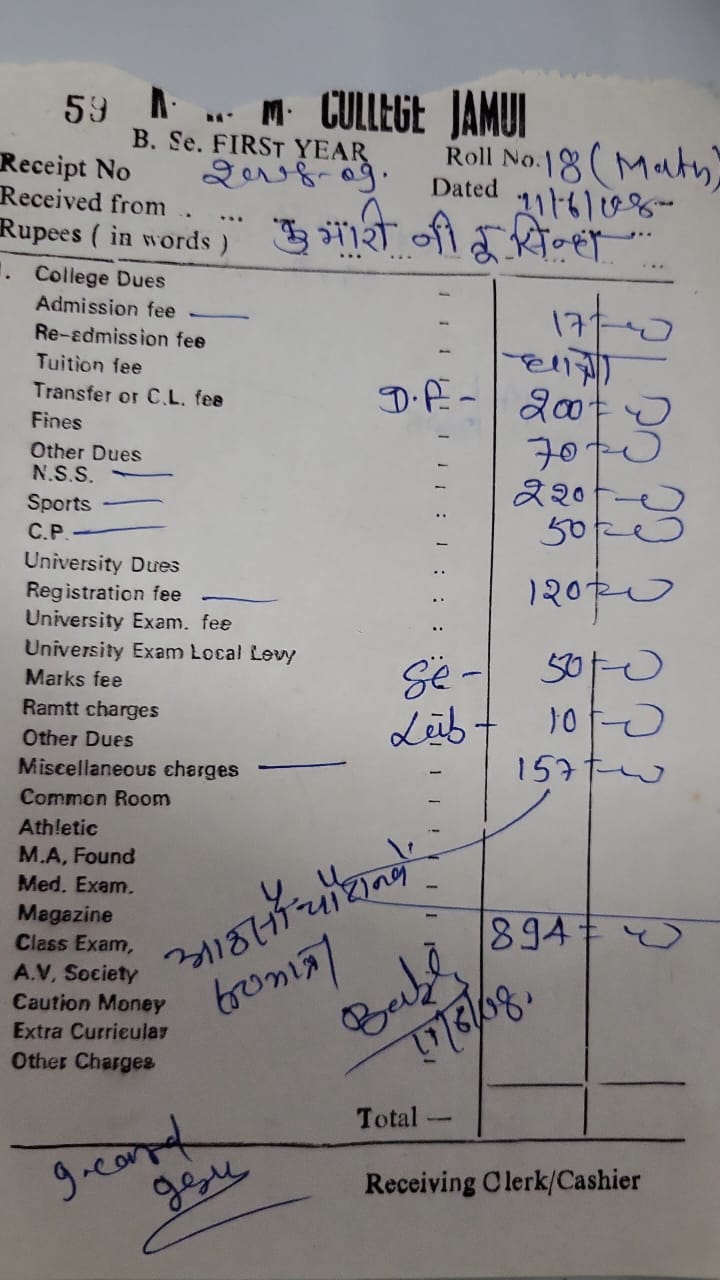 59 M. COLLEGE JAMUI
B. Se. FIRST YEAR
Roll No. 18 (Maths)
Receipt No 2008-09.
Dated 11/6/08
Received from .. ...
Rupees ( in words ) कुमारी नीतू सिन्हा
College Dues
Admission fee — 17=00
Re-admission fee
Tuition fee छात्रा
Transfer or C.L. fee D.F - 200=00
Fines 70=00
Other Dues
N.S.S. — 220=00
Sports — 50=00
C.P. —
University Dues
Registration fee — 120=00
University Exam. fee
University Exam Local Levy
Marks fee Se - 50=00
Ramtt charges Leib - 10=00
Other Dues
Miscellaneous charges — 157=00
Common Room
Athletic
M.A, Found
Med. Exam.
Magazine
Class Exam, 894=00
आठ सौ चौरानवें
A.V, Society
Caution Money
11/6/08.
Extra Curricular
Other Charges
Total —
g.card
Receiving Clerk/Cashier